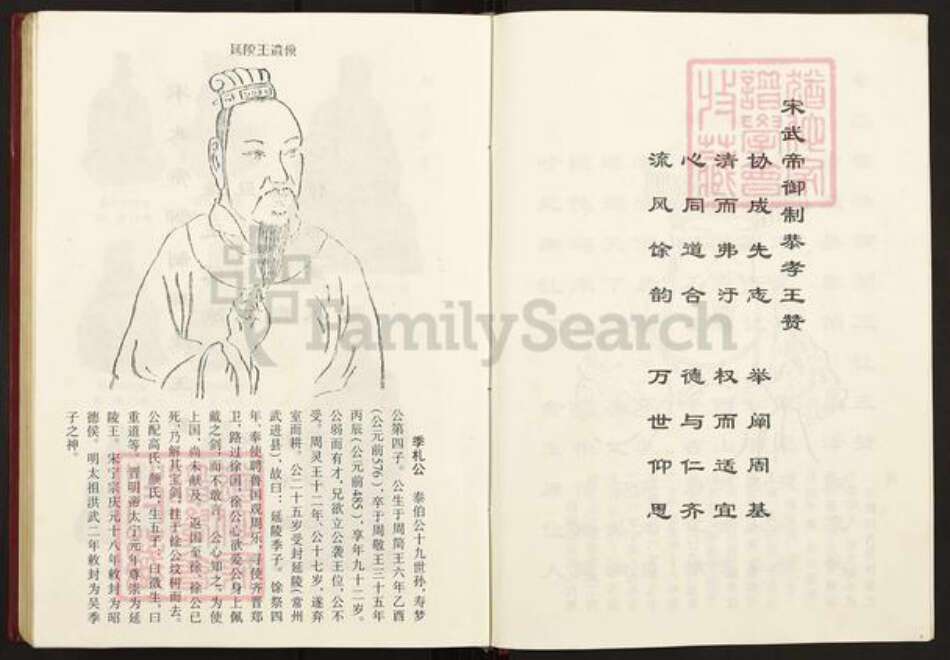 宋武帝御制恭孝王赞
协成先志 举阐周基
清而弗汙 权而适宜
心同道合 德与仁齐
流风馀韵 万世仰思
延陵王遗像
季札公 泰伯公十九世孙，寿梦
公第四子。公生于周简王六年乙酉
（公元前576），卒于周敬王三十五年
丙辰（公元前485），享年九十二岁。
公弱而有才，兄欲立公袭王位，公不
受。周灵王十二年、公十七岁，遂弃
室而耕。公二十五岁受封延陵（常州
武进县），故曰：延陵季子。馀祭四
年，奉使聘鲁国观周乐，寻使齐晋郑
卫，路过徐国，徐公心欲爱公身上佩
戴之剑，而不敢言。公心知之，为使
上国，尚未献及。返国至徐，徐公已
死，乃解其宝剑，挂于徐公坟树而去。
公配高氏、颜氏，生五子，曰徵生，曰
重道等。晋明帝太宁元年尊崇为延
陵王。宋宁宗庆元十八年敕封为昭
德侯。明太祖洪武二年敕封为吴季
子之神。
FamilySearch